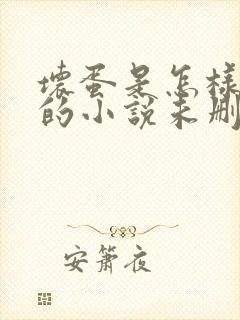 壞蛋是怎樣
的小說未刪
安簫夜